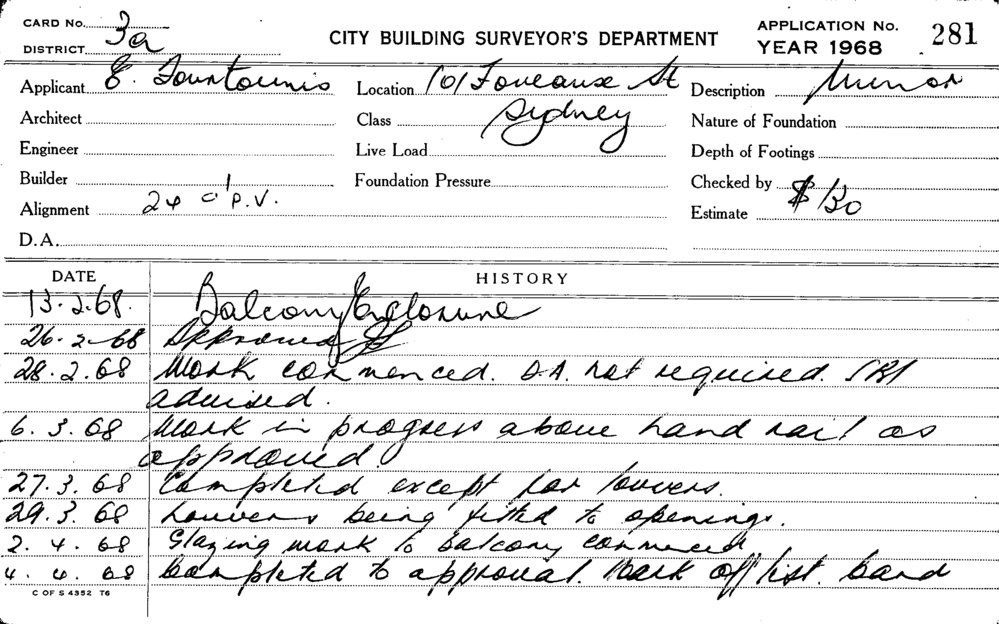 CARD No.
DISTRICT 3a
CITY BUILDING SURVEYOR'S DEPARTMENT
APPLICATION No. 281
YEAR 1968
Applicant E. Fountounis Location 101 Foveaux St Description Minor
Architect Class Sydney Nature of Foundation
Engineer Live Load Depth of Footings
Builder Foundation Pressure Checked by
Alignment P.V. Estimate $120
D.A.
DATE HISTORY
13.2.68. Balcony Enclosure
26.2.68 Approved
28.2.68 Work commenced. D.A. not required.
advised.
6.3.68 Work in progress above hand rail as
approved.
27.3.68 Completed except for louvers.
29.3.68 Louvers being fitted to openings.
2.4.68 Glazing work to balcony commenced
4.4.68 Completed to approval. Mark off list. Card
C OF S 4352 T6